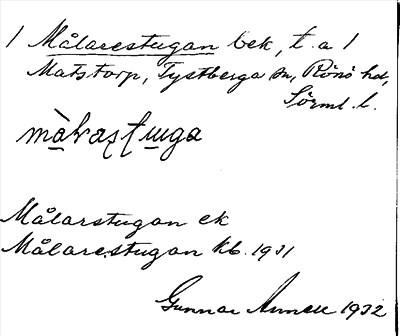 1 Målarestugan bek, t. a 1
Matstorp, Tystberga sn, Rönö hd,
Sörml. l.
målrastuga
Målarstugan ek
Målarestugan kb. 1931
Gunnar 1932